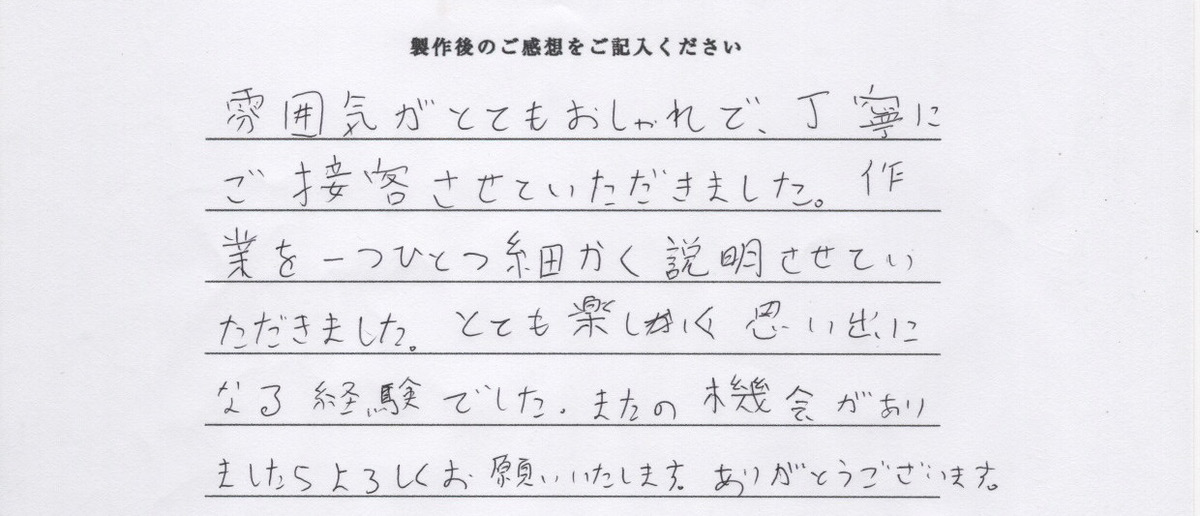 製作後のご感想をご記入ください
雰囲気がとてもおしゃれで、丁寧に
ご接客させていただきました。作
業を一つひとつ細かく説明させてい
ただきました。とても楽しく思い出に
なる経験でした。またの機会があり
ましたらよろしくお願いいたします。ありがとうございます。